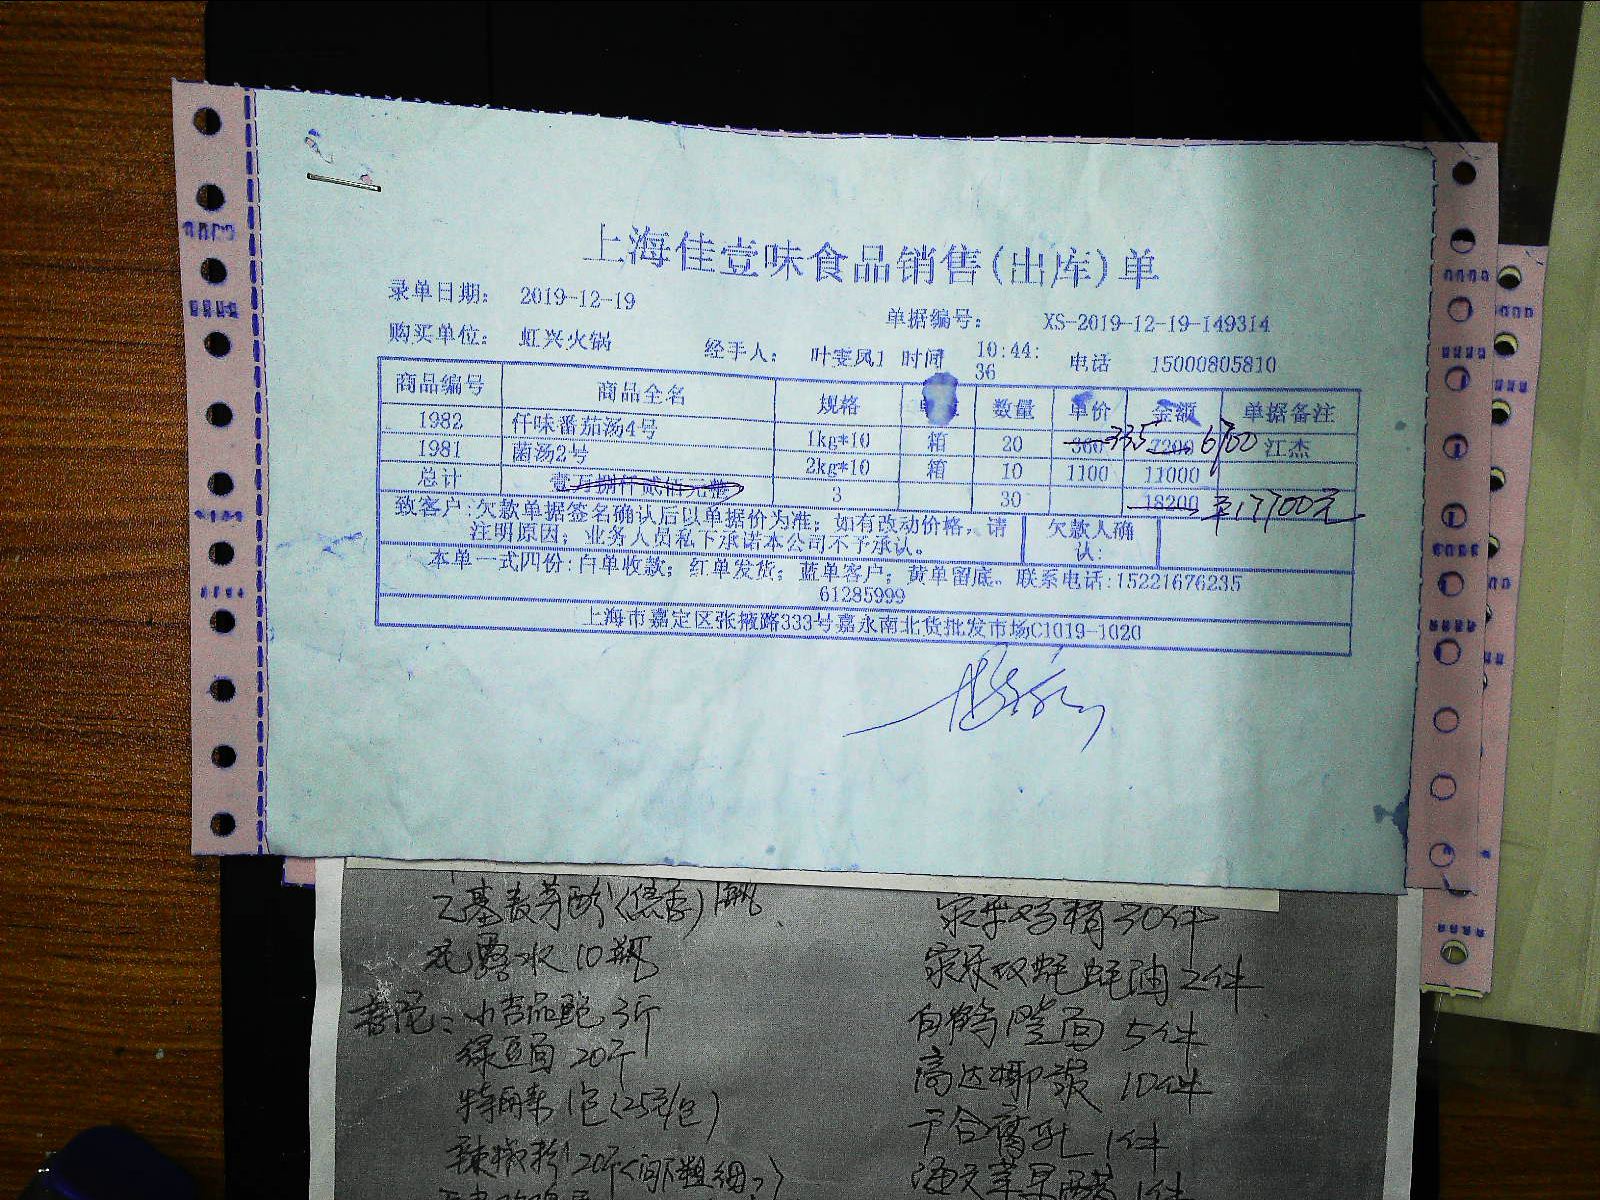 上海佳壹味食品销售(出库)单
录单日期: 2019-12-19 单据编号: XS-2019-12-19-149314
购买单位: 虹兴火锅 经手人: 叶雯凤1 时间 10:44:36 电话 15000805810
商品编号 商品全名 规格 数量 单价 金额 单据备注
1982 仟味番茄汤4号 1kg*10 箱 20 360 335 7200 6700 江杰
1981 菌汤2号 2kg*10 箱 10 1100 11000
总计 壹万捌仟贰佰元整 3 30 18200 17700元
致客户:欠款单据签名确认后以单据价为准;如有改动价格,请注明原因;业务人员私下承诺本公司不予承认。 欠款人确认:
本单一式四份:白单收款;红单发货;蓝单客户;黄单留底。联系电话:15221676235
61285999
上海市嘉定区张掖路333号嘉永南北货批发市场C1019-1020
乙基麦芽酚(焦香) 家乐鸡精 30件
花露水 10瓶 家乐 蚝油 2件
3斤 白鹤 面 5件
绿豆面 20斤 高达椰浆 10件
1包(25元/包) 腐乳 1件
辣椒粉 20斤 苹果醋 1件